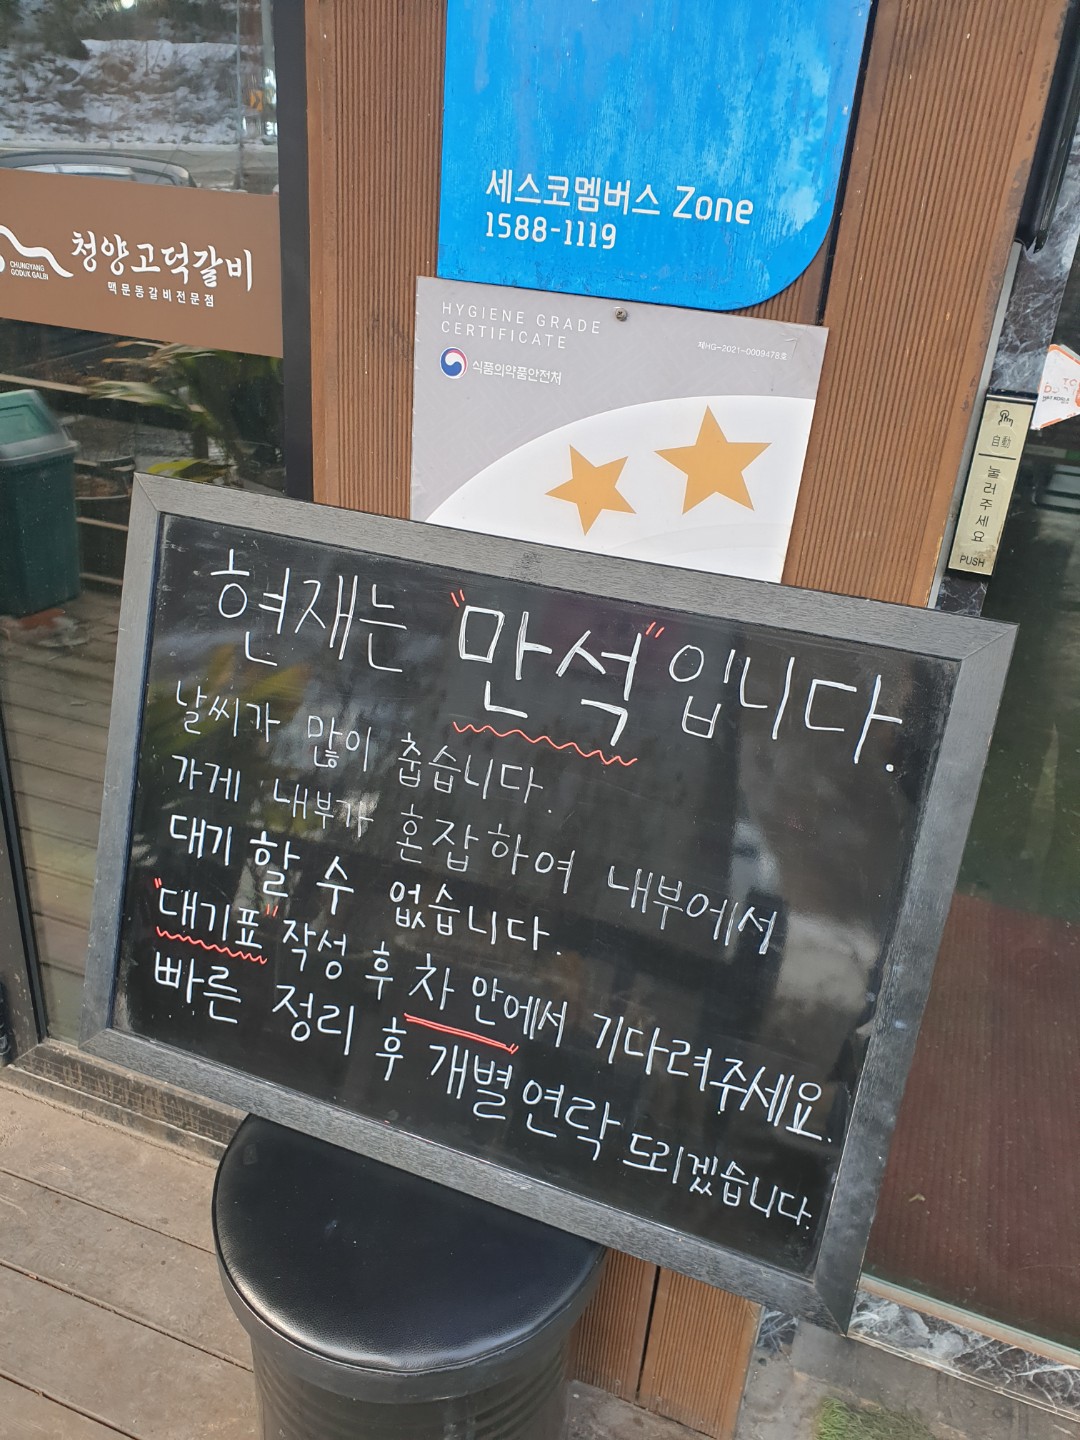 세스코멤버스 Zone
1588-1119
청양고덕갈비
CHUNGYANG
GODUK GALBI
맥문동갈비전문점
HYGIENE GRADE
CERTIFICATE
제HG-2021-0009478호
식품의약품안전처
自動
눌러주세요
PUSH
현재는 "만석"입니다.
날씨가 많이 춥습니다.
가게 내부가 혼잡하여 내부에서
대기 할 수 없습니다.
"대기표" 작성 후 차 안에서 기다려주세요.
빠른 정리 후 개별 연락 드리겠습니다.